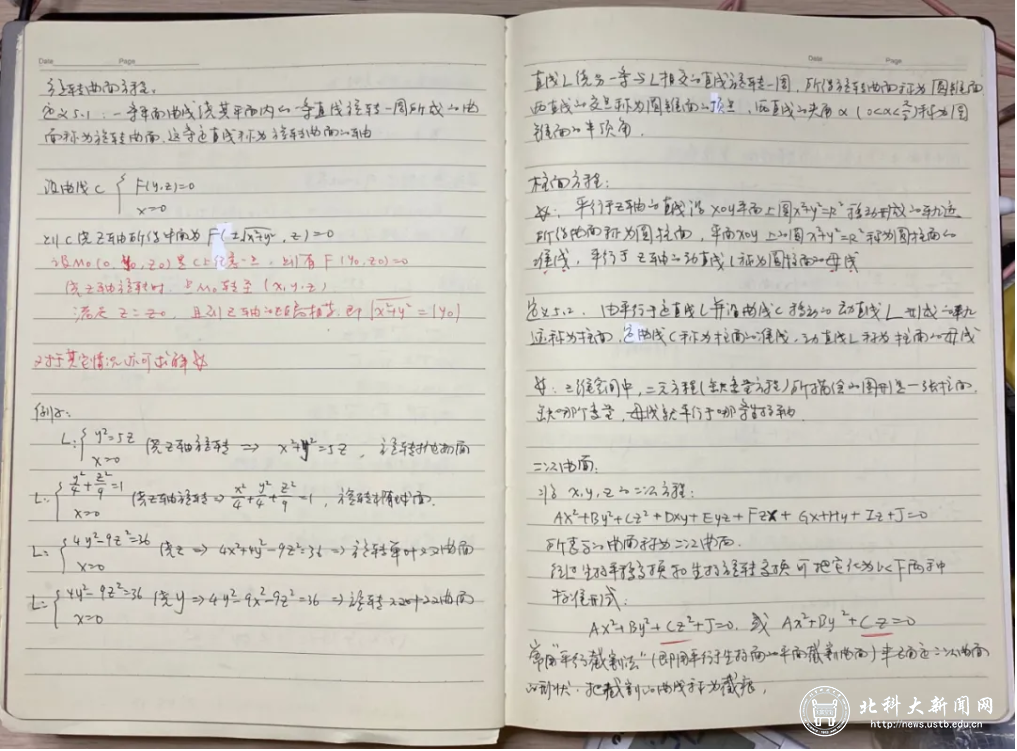 Date Page
旋转曲面方程:
定义5.1: 一条平面曲线绕其平面内的一条直线旋转一周所成的曲
面称为旋转曲面,这条定直线称为旋转曲面的轴
设曲线C { F(y,z)=0
x=0
则C绕Z轴所得曲面为 F(±√x²+y², z)=0
设M₀(0, y₀, z₀)是C上任意一点,则有 F(y₀,z₀)=0
绕Z轴旋转时,点M₀转至 (x,y,z)
满足 z=z₀, 且到Z轴的距离相等,即√x²+y²=|y₀|
对于其它情况亦可求解
例如:
L: { y²=5z
x=0 绕Z轴旋转 ⇒ x²+y²=5z, 旋转抛物面
L: { y²/4+z²/9=1
x=0 绕Z轴旋转⇒ x²/4+y²/4+z²/9=1, 旋转椭球面.
L: { 4y²-9z²=36
x=0 绕z ⇒ 4x²+4y²-9z²=36 ⇒旋转单叶双曲面
L: { 4y²-9z²=36
x=0 绕y ⇒4y²-9x²-9z²=36 ⇒旋转双叶双曲面
Date Page
直线L绕另一条与L相交的直线旋转一周,所得旋转曲面称为圆锥面
两直线的交点称为圆锥面的顶点,两直线的夹角α(0<α<π/2)称为圆
锥面的半顶角.
柱面方程:
平行于Z轴的直线沿xoy平面上圆x²+y²=R²移动形成的轨迹
所得曲面称为圆柱面,平面xoy上的圆x²+y²=R²称为圆柱面的
准线,平行于Z轴的动直线L称为圆柱面的母线
定义5.2. 由平行于定直线L并沿曲线C移动的动直线L形成的轨
迹称为柱面,定曲线C称为柱面的准线,动直线L称为柱面的母线
三维空间中,二元方程(缺变量方程)所描绘的图形是一张柱面.
缺哪个变量,母线就平行于哪条坐标轴.
二次曲面:
将x,y,z的二次方程:
Ax²+By²+Cz²+Dxy+Eyz+Fzx+Gx+Hy+Iz+J=0
所表示的曲面称为二次曲面.
经过坐标平移变换和坐标旋转变换可把它化为以下两种
标准形式:
Ax²+By²+Cz²+J=0. 或 Ax²+By²+Cz=0
常用"平行截割法"(即用平行于坐标面的平面截割曲面)来确定二次曲面
的形状,把截割的曲线称为截痕,
北科大新闻网
http://news.ustb.edu.cn